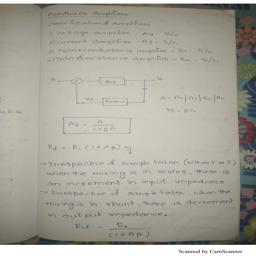 Feedback Amplifiers
Classification of amplifiers
1) Voltage amplifier Av = Vo/Vi
2) current amplifier AI = Io/Ii
3) Transconductance amplifier - Gm = Io/Vi
4) Transresistance amplifier - Rm = Vo/Ii
Af = A / 1+βA
Rif = Ri (1+Aβ)
→ Irrespective of sample taken (either V or I)
when the mixing is in series, there is
an increment in input impedance
→ Irrespective of sample taken, when the
mixing is shunt, there is decrement
in output impedance.
Rif = Ri / (1+Aβ)
Scanned by CamScanner